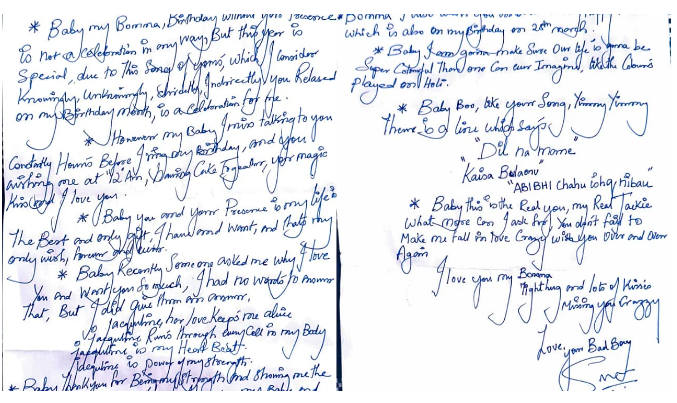 * Baby my Bomma, Birthday without you Presence
is not a Celebration in my way, But this year is
Special, due to This Song of yours which I Consider
Knowingly, Unknowingly, Directly, Indirectly you Relased
on my Birthday month, is a Celebration for me.
* However my Baby I miss talking to you
Constantly Hours Before I ring my Birthday, and you
wishing me at "12" Am, Cake Together, your magic
Kiss and I love you.
* Baby you and your Presence in my life is
The Best and only gift, I have and want, and thats my
only wish, forever and ever.
* Baby Recently Someone asked me why I love
you And Want you So much, I had no words to Answer
That, But I did give them an answer,
Jacqueline, her love Keeps me alive
Jacqueline Runs through every Cell in my Body
Jacqueline is my Heart Beat.
Jacqueline is Power of my Strength.
* Baby Thank you for Being my Strength and Showing me the
my Baby and
Bomma I have
which is also on my Birthday on 25th march.
* Baby I am gonna make Sure Our life is gonna be
Super Colorful Than one Can ever Imagine, like the Colours
Played on Holi.
* Baby Boo, like your Song, Yimmy Yimmy
There is a line which says
"Dil na mane"
Kaisa Bedaent
"ABIBHI Chahu ishq nibau"
* Baby this is the Real you, my Real Jackie
What more Can I ask for, You don't fail to
Make me fall in love Crazy with you over and over
Again
I love you my Bomma
Tight hug and lots of Kisses
Missing you Crazzy
Love, your Bad Boy